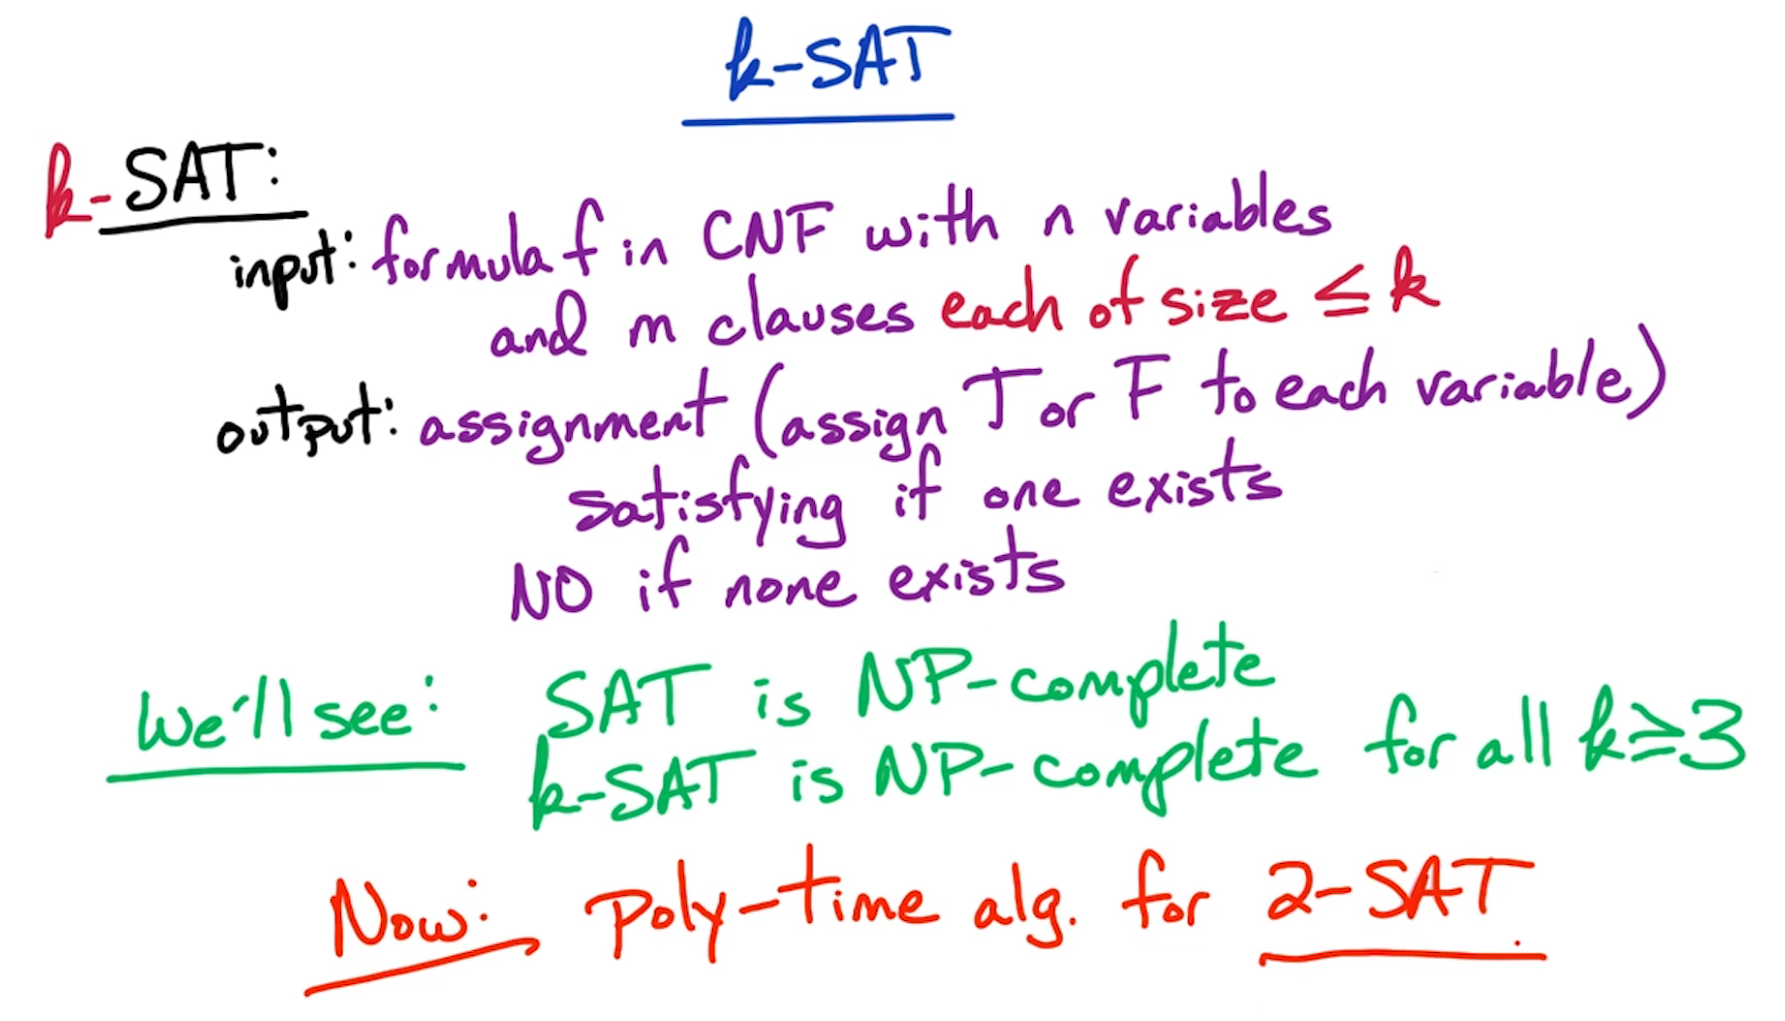 k-SAT
k-SAT:
input: formula f in CNF with n variables
and m clauses each of size ≤ k
output: assignment (assign T or F to each variable)
satisfying if one exists
NO if none exists
We'll see: SAT is NP-complete
k-SAT is NP-complete for all k≥3
Now: Poly-time alg. for 2-SAT.